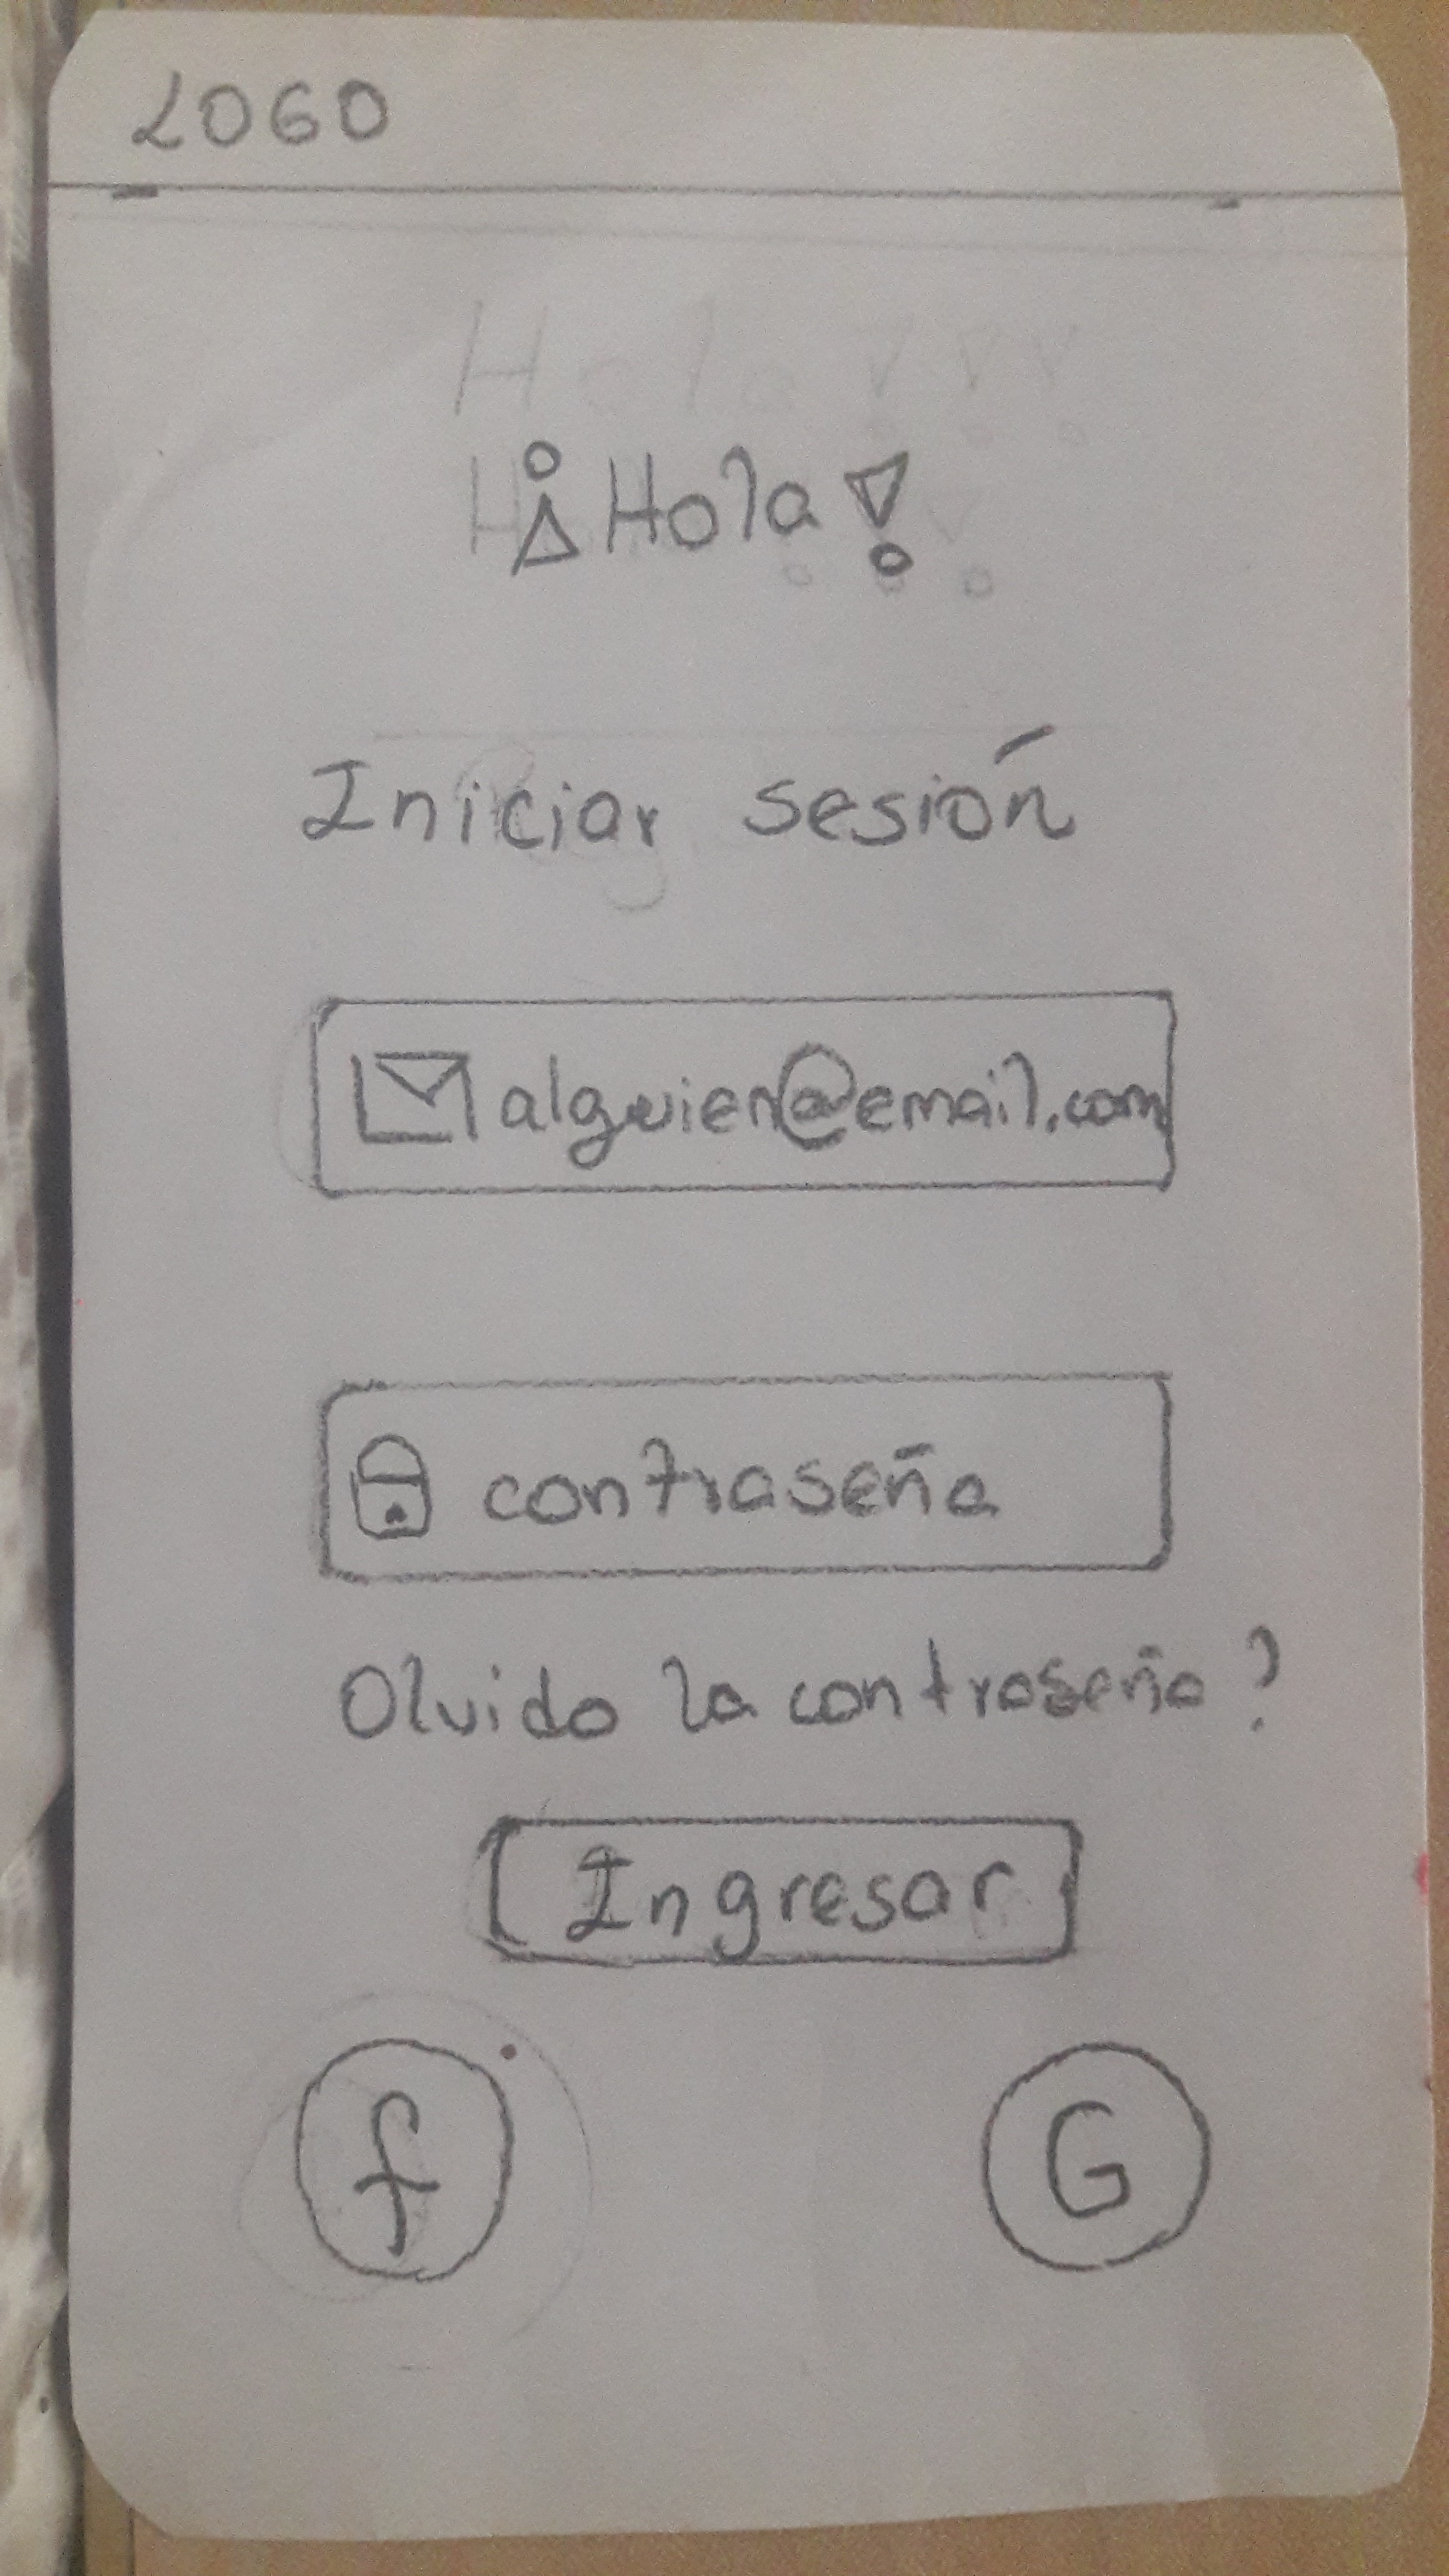 LOGO
¡Hola!
Iniciar sesión
alguien@email.com
contraseña
Olvido la contraseña?
Ingresar
f G